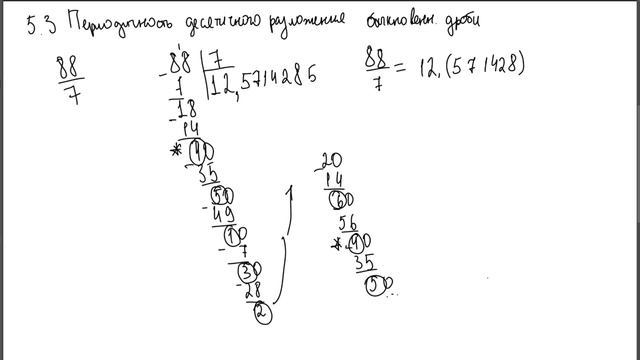 5.3 Периодичность десятичного разложения обыкновенн. дроби
88/7
- 88 | 7
12,5714285
7
- 18
14
* - 40
35
- 50
49
- 10
7
- 30
28
2
- 20
14
60
56
* - 40
35
50
...
88/7 = 12,(571428)